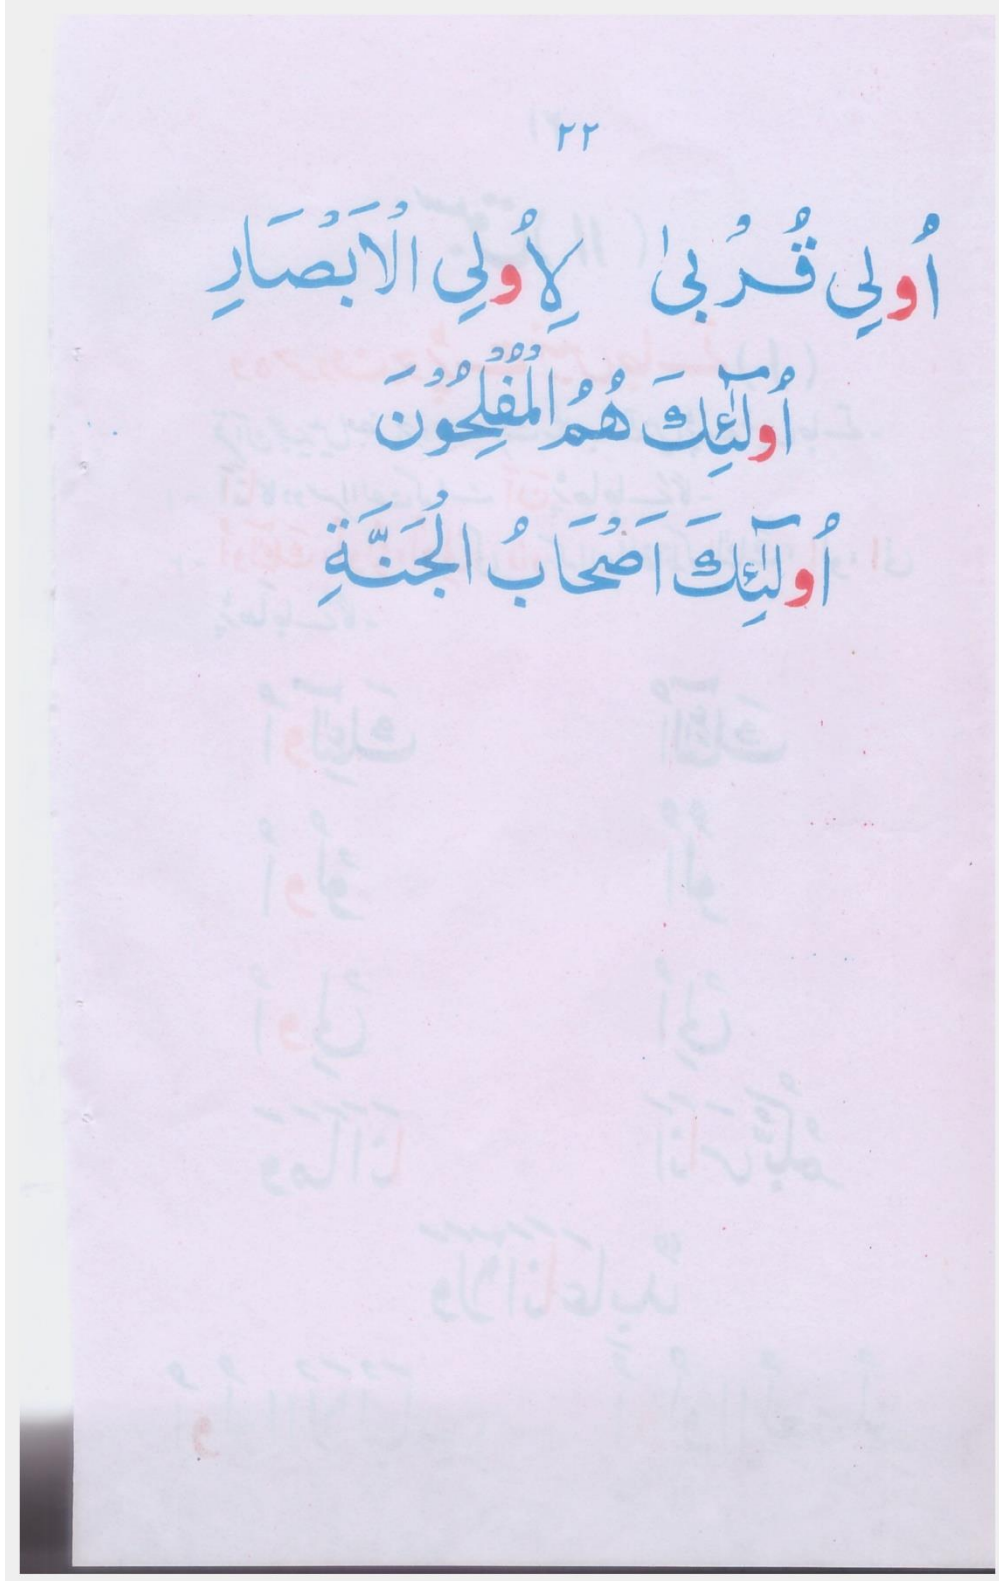 ٢٢
اُولِي قُرْبىٰ لِاُولِي الْاَبْصَارِ
اُولٰٓئِكَ هُمُ الْمُفْلِحُوْنَ
اُولٰٓئِكَ اَصْحَابُ الْجَنَّةِ